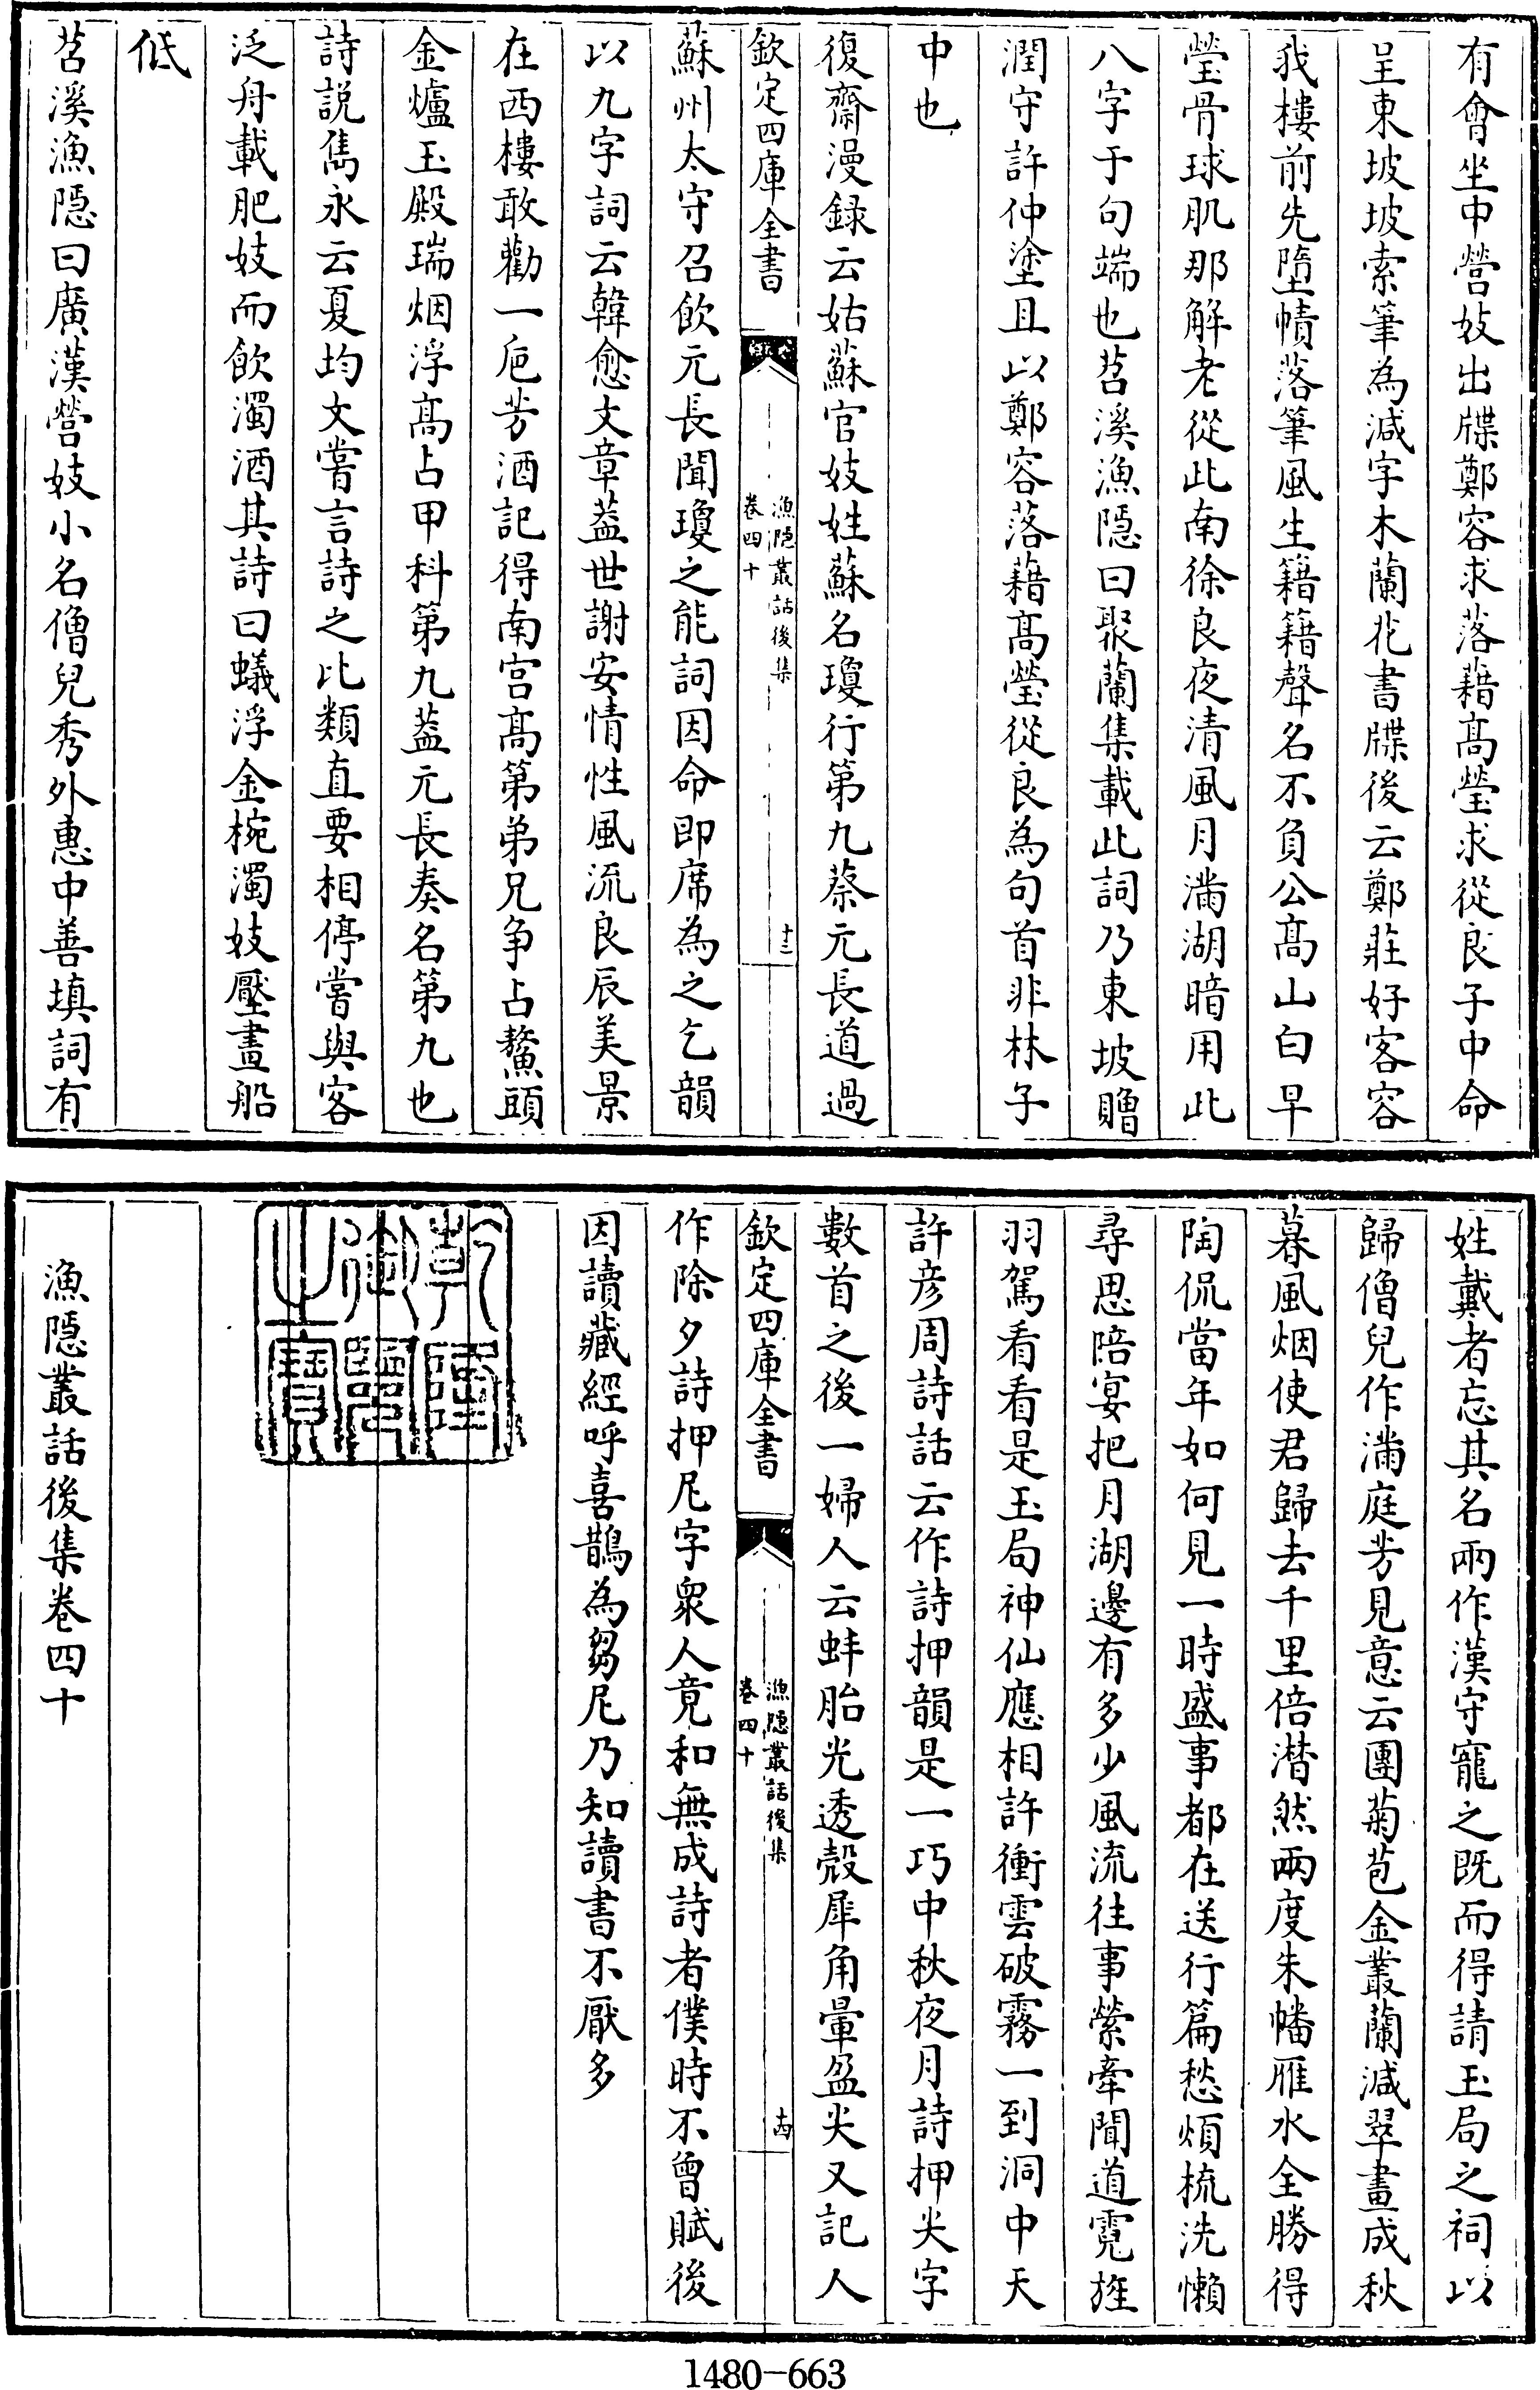 有會坐中營妓出牒鄭容求落藉髙瑩求從良子中命
呈東坡坡索筆為減字木蘭花書牒後云鄭莊好客容
我樓前先墮幘落筆風生籍籍聲名不負公髙山白早
瑩骨球肌那解老從此南徐良夜清風月滿湖暗用此
八字于句端也苕溪漁隠曰聚蘭集載此詞乃東坡贈
潤守許仲塗且以鄭容落藉髙瑩從良為句首非林子
中也
復齋漫録云姑蘇官妓姓蘇名瓊行第九蔡元長道過
欽定四庫全書
漁隠叢話後集
卷四十
十三
蘇州太守召飲元長聞瓊之能詞因命即席為之乞韻
以九字詞云韓愈文章葢世謝安情性風流良辰美景
在西樓敢勸一巵芳酒記得南宫髙第弟兄争占鰲頭
金爐玉殿瑞烟浮髙占甲科第九葢元長奏名第九也
詩説雋永云夏均文嘗言詩之比類直要相停嘗與客
泛舟載肥妓而飲濁酒其詩曰蟻浮金椀濁妓壓畫船
低
苕溪漁隠曰廣漢營妓小名僧兒秀外惠中善填詞有
姓戴者忘其名兩作漢守寵之既而得請玉局之祠以
歸僧兒作滿庭芳見意云團菊苞金叢蘭減翠畫成秋
暮風烟使君歸去千里倍潜然兩度朱幡雁水全勝得
陶侃當年如何見一時盛事都在送行篇愁煩梳洗懶
尋思陪宴把月湖邊有多少風流往事縈牽聞道霓旌
羽駕看看是玉局神仙應相許衝雲破霧一到洞中天
許彦周詩話云作詩押韻是一巧中秋夜月詩押尖字
數首之後一婦人云蚌胎光透殻犀角暈盈尖又記人
欽定四庫全書
漁隠叢話後集
卷四十
十四
作除夕詩押尼字衆人竟和無成詩者僕時不曾賦後
因讀藏經呼喜鵲為芻尼乃知讀書不厭多
乾隆御覽之寶
漁隠叢話後集卷四十
1480-663